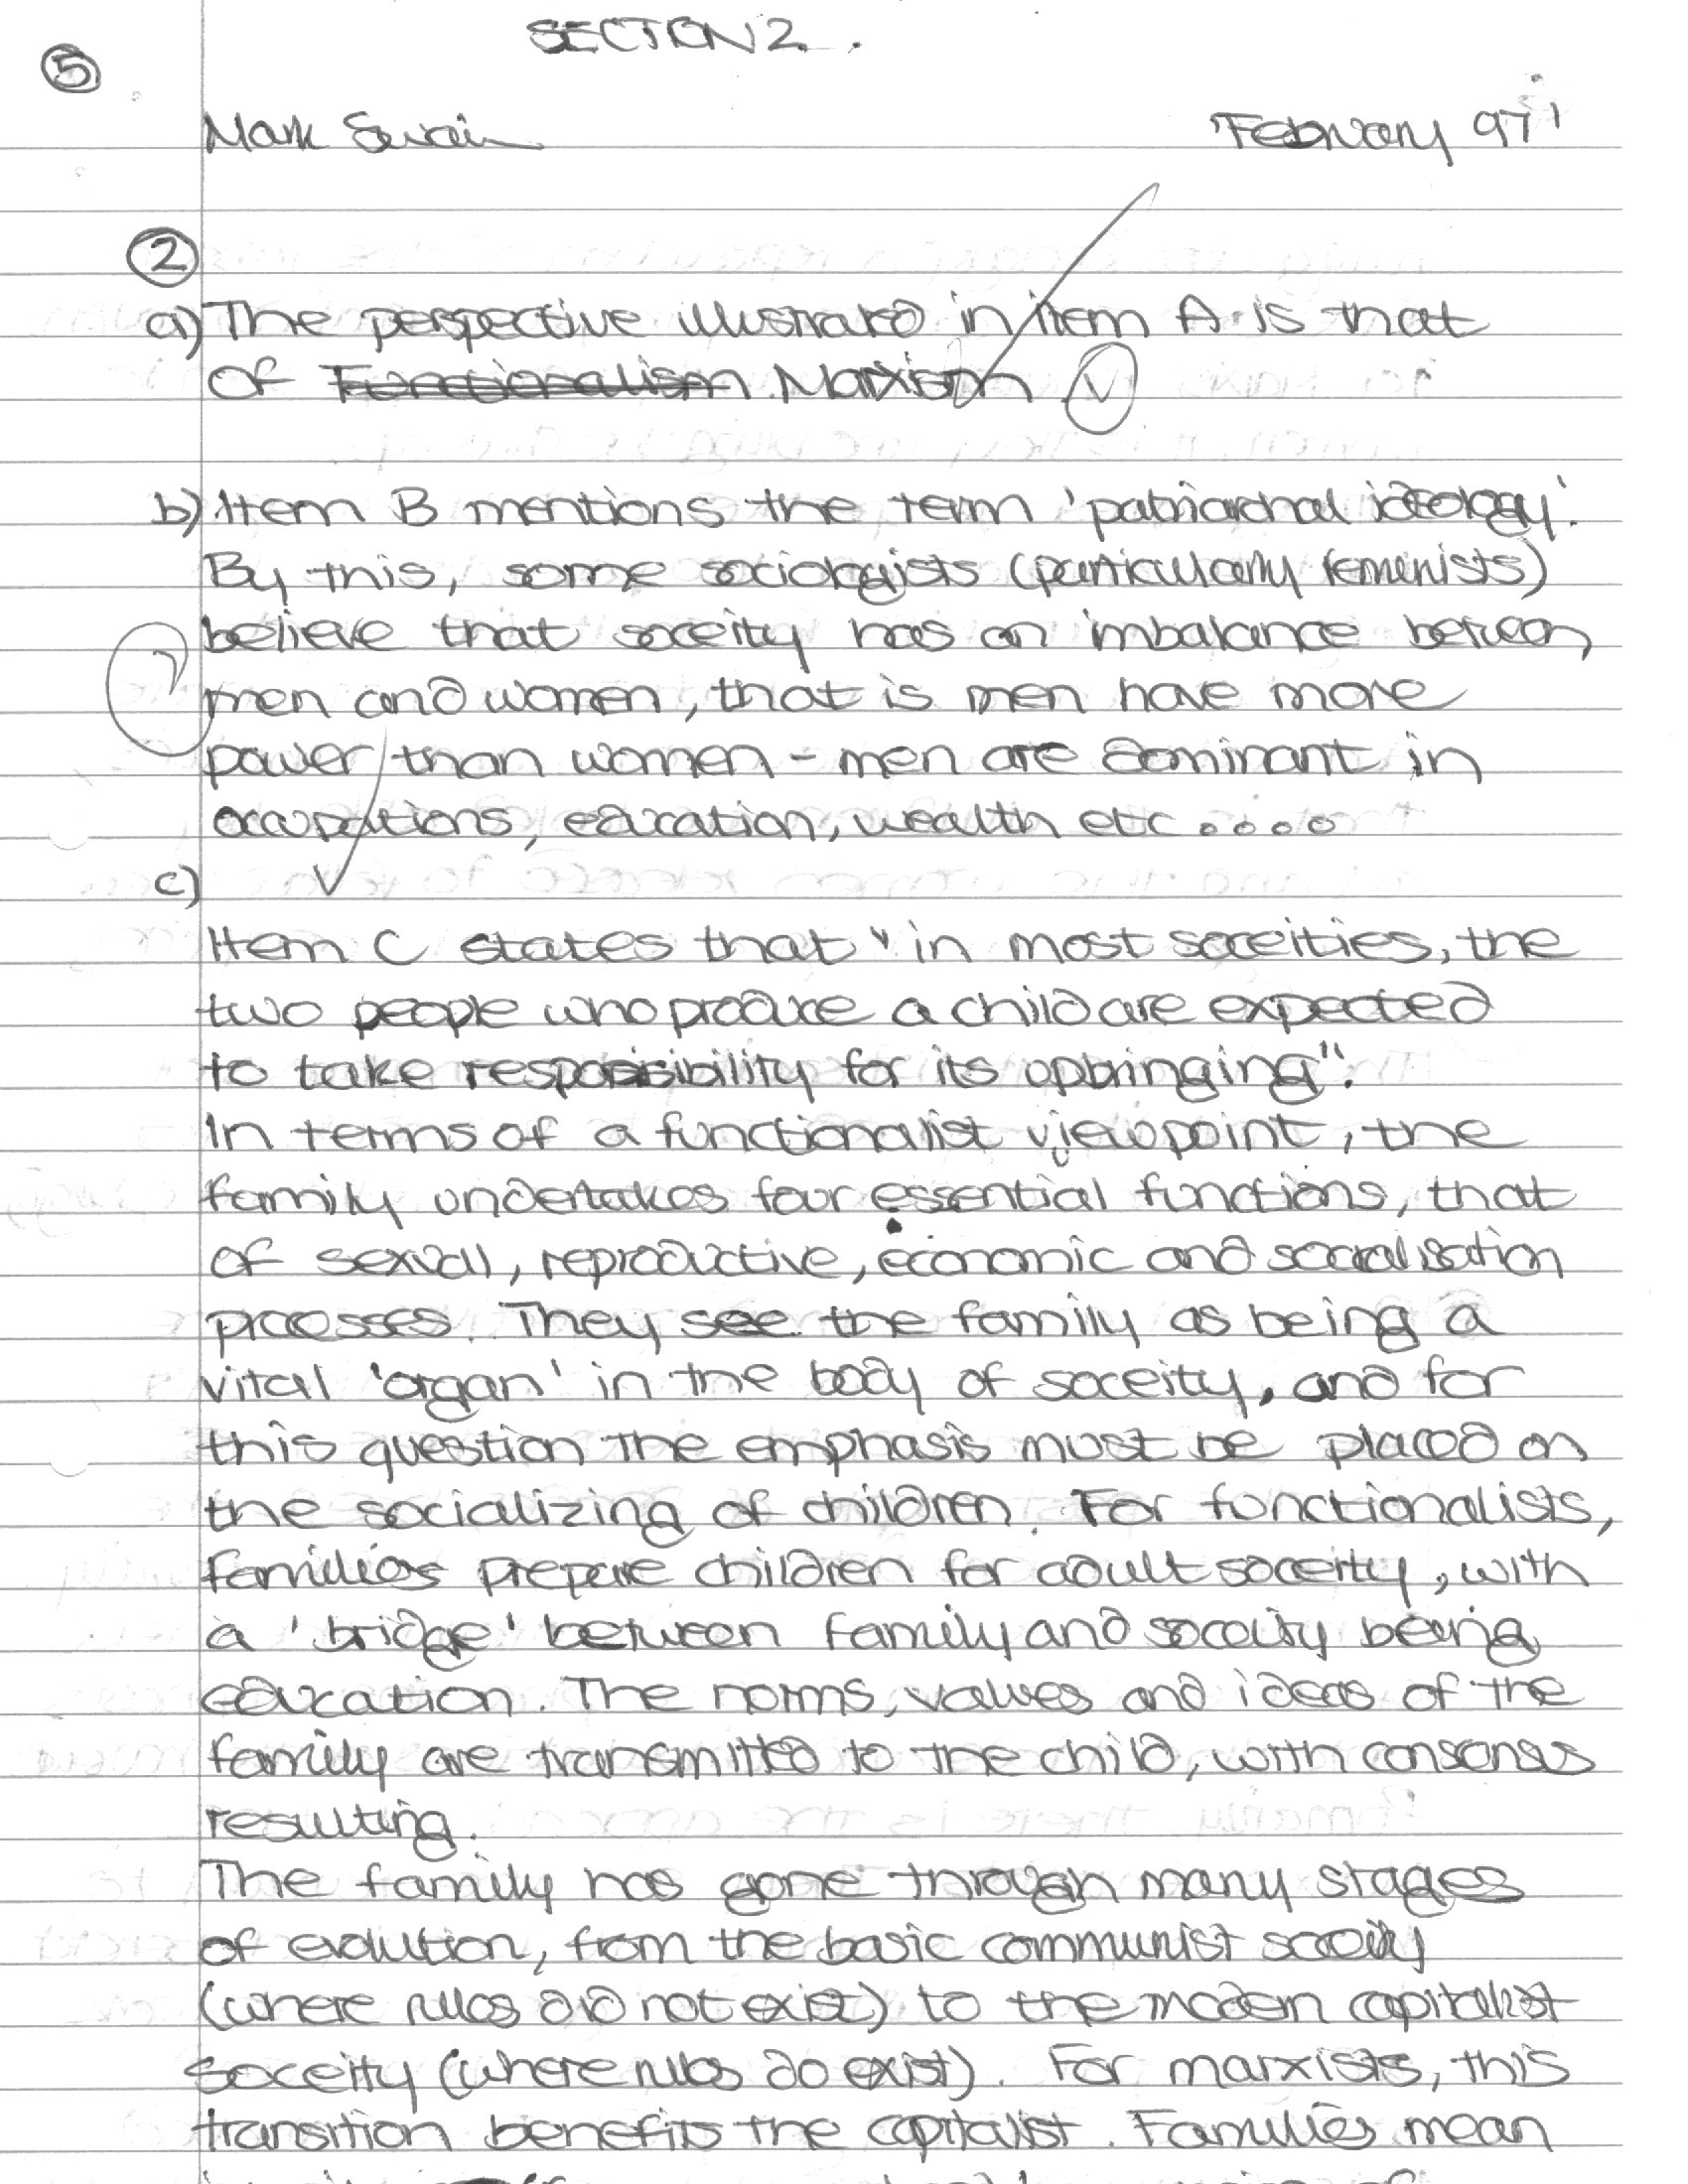 SECTION 2.
5
Mark Swain February 97'
2
a) The perspective illustrated in item A is that
of Functionalism Marxism
b) Item B mentions the term 'patriarchal ideology'.
By this, some sociologists (particularly feminists)
believe that soceity has an imbalance between
men and women, that is men have more
power than women - men are dominant in
occupations, education, wealth etc....
c)
Item C states that "in most soceities, the
two people who produce a child are expected
to take resposisibility for its upbringing".
In terms of a functionalist viewpoint, the
family undertakes four essential functions, that
of sexual, reproductive, economic and socialisation
processes. They see the family as being a
vital 'organ' in the body of soceity, and for
this question the emphasis must be placed on
the socializing of children. For functionalists,
families prepare children for adult soceity, with
a 'bridge' between family and soceity being
education. The norms, values and ideas of the
family are transmitted to the child, with consensus
resulting.
The family has gone through many stages
of evolution, from the basic communist soceity
(where rules did not exist) to the modern capitalist
soceity (where rules do exist). For marxists, this
transition benefits the capitalist. Families mean